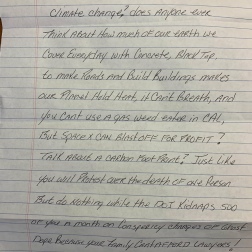 Climate change? does Anyone ever
Think About How much of our earth we
Cover Everyday with Concrete, Black Top,
to make Roads and Build Buildings makes
our Planet Hold Heat, it Can't Breath, And
you Can't use A gas weed eater in CAL,
But Space X CAN BlAST OFF FOR PROFIT?
TALK About A CArbon Foot Print? Just Like
you will Protest over the Death of one Person
But do Nothing while the DOJ Kidnaps 500
of you A month on Conspiracy charges of Ghost
Dope Because your Family Can't AFFORD LAwyers!